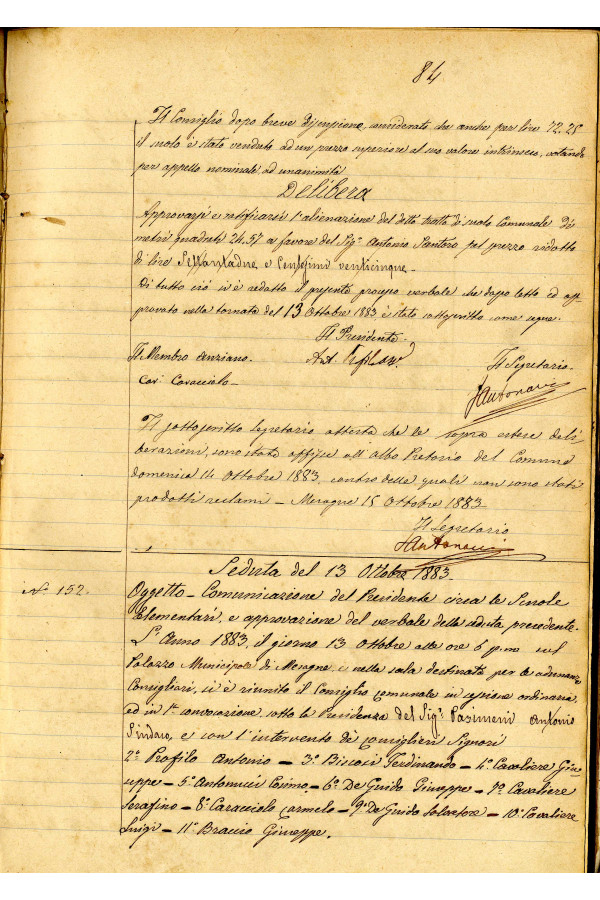 84
Il Consiglio dopo breve discussione, considerato che anche per lire 72.25
il suolo è stato venduto ad un prezzo superiore al suo valore intrinseco, votando
per appello nominale ad unanimità
Delibera
Approvarsi e ratificarsi l'alienazione del detto tratto di suolo Comunale di
metri quadrati 24.57 a favore del Sig.r Antonio Santoro pel prezzo ridotto
di lire Settantadue e Centesimi venticinque -
Di tutto ciò si è redatto il presente processo verbale che dopo letto ed ap-
provato nella tornata del 13 Ottobre 1883 è stato sottoscritto come segue.
Il Presidente
Il Membro anziano.
Il Segretario
Cav. Caracciolo -
Antonucci
Il sottoscritto Segretario attesta che le sopra estese deli
berazioni, sono state affisse all'Albo Pretorio del Comune
domenica 14 Ottobre 1883, contro delle quali non sono stati
prodotti reclami - Mesagne 15 Ottobre 1883
Il Segretario
Antonucci
Seduta del 13 Ottobre 1883 -
N.o 152.
Oggetto - Comunicazione del Presidente circa le Scuole
Elementari, e approvazione del verbale della seduta precedente.
L'Anno 1883, il giorno 13 Ottobre alle ore 6 p.m. nel
Palazzo Municipale di Mesagne, e nella sala destinata per le adunanze
Consigliari, si è riunito il Consiglio comunale in sessione ordinaria
ed in 1a convocazione sotto la Presidenza del Sig.r Pasimeni Antonio
Sindaco, e con l'intervento di consiglieri Signori
2.o Profilo Antonio - 3.o Biscosi Ferdinando - 4.o Cavaliere Giu
seppe - 5.o Antonucci Cosimo - 6.o De Guido Giuseppe - 7.o Cavaliere
Serafino - 8.o Caracciolo Carmelo - 9.o De Guido Salvatore - 10.o Cavaliere
Luigi - 11.o Braccio Giuseppe.